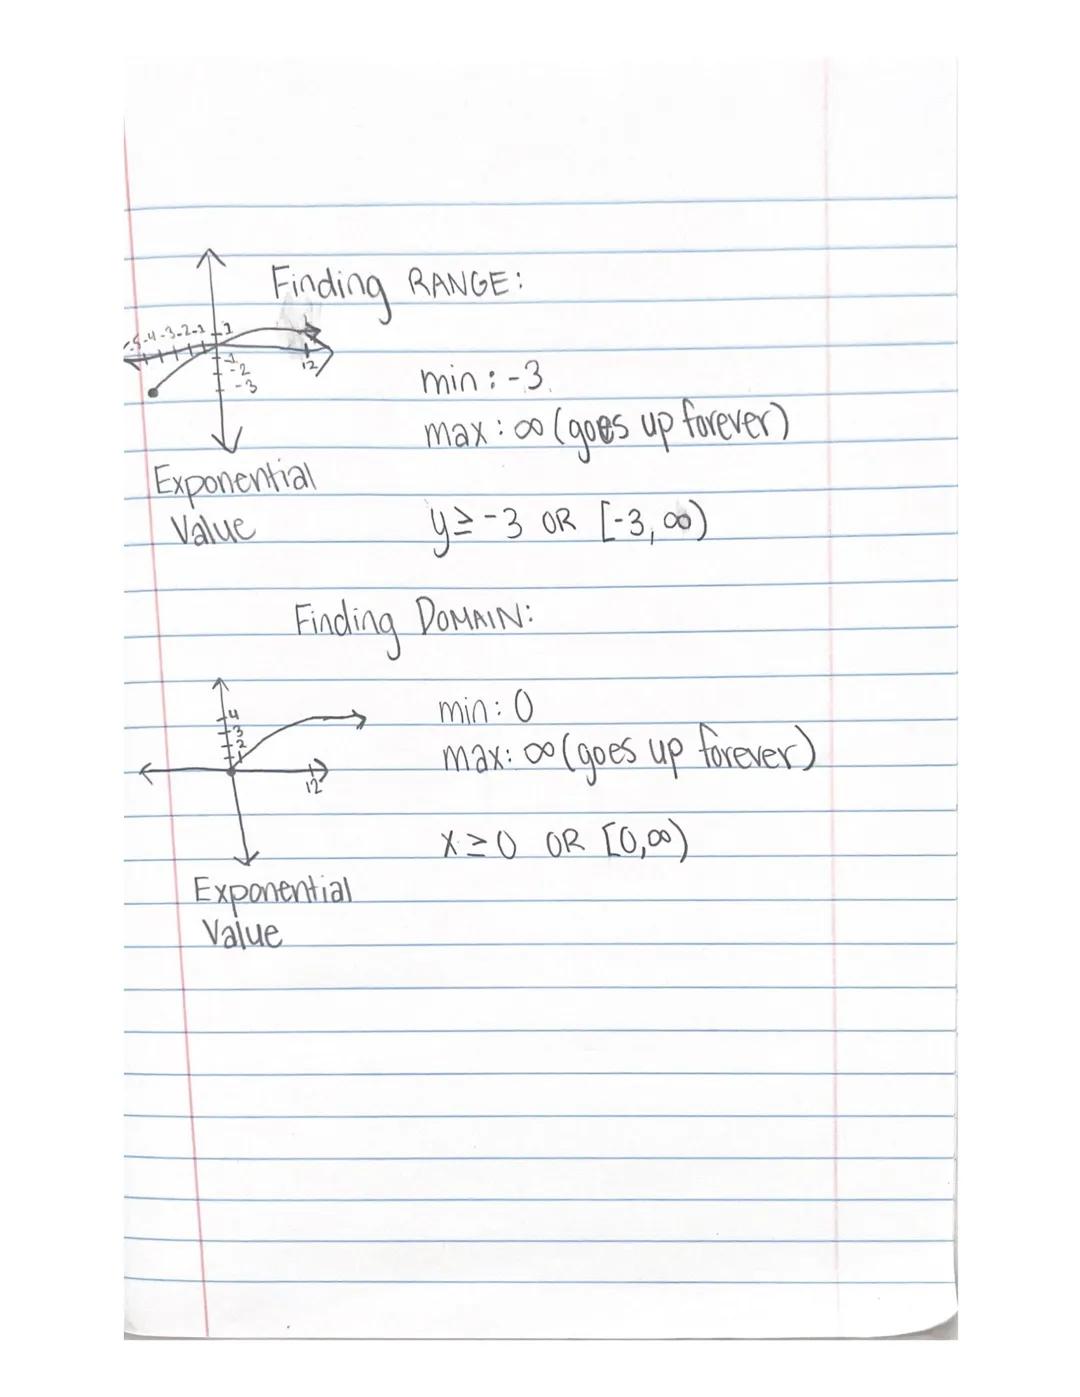 Finding RANGE:
-5 -4 -3 -2 -1 1
-1
-2
-3
12
min: -3
max: ∞ (goes up forever)
Exponential
Value
y ≥ -3 OR [-3, ∞)
Finding DOMAIN:
4
3
2
1
12
min: 0
max: ∞ (goes up forever)
x ≥ 0 OR [0, ∞)
Exponential
Value